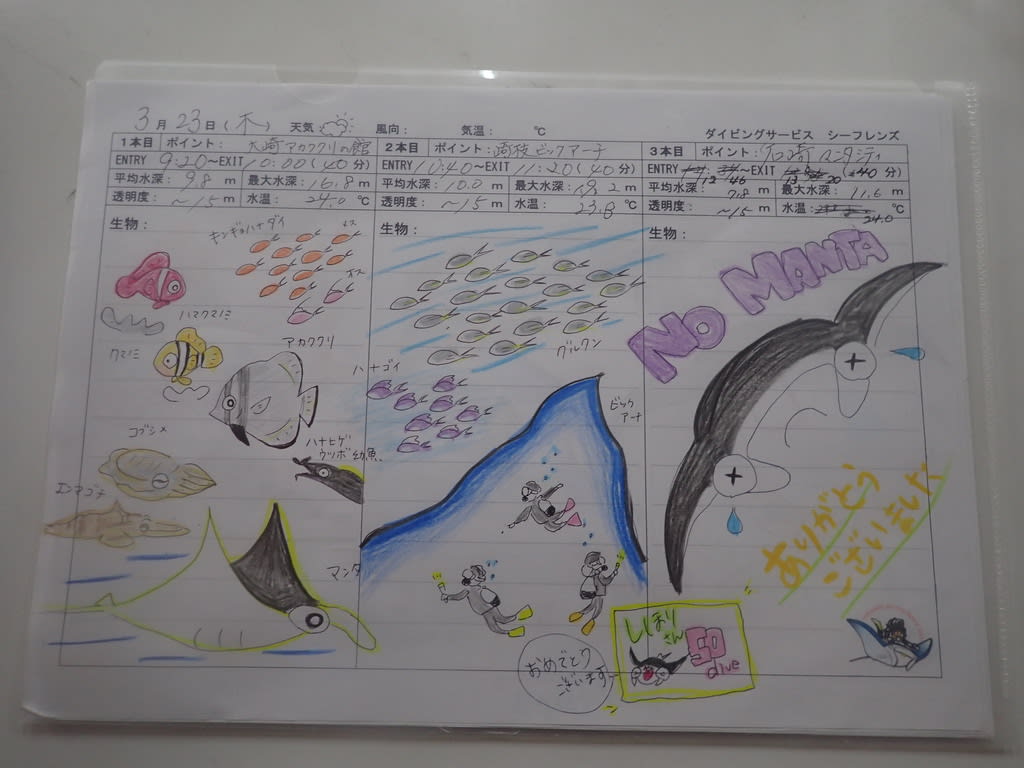 3月23日(木) 天気 風向: 気温: ℃ ダイビングサービス シーフレンズ
1本目 ポイント: 大崎アカククリの館
ENTRY 9:20～EXIT 10:00(40分)
平均水深: 9.8 m 最大水深: 16.8 m
透明度: ～15 m 水温: 24.0 ℃
生物:
キンギョハナダイ
メス
オス
ハマクマノミ
クマノミ
アカククリ
コブシメ
ハナヒゲ
ウツボ幼魚
マンタ
2本目 ポイント: 崎枝ビックアーチ
ENTRY 10:40～EXIT 11:20(40分)
平均水深: 10.0 m 最大水深: m
透明度: ～15 m 水温: 23.8 ℃
生物:
グルクン
ハナゴイ
ビック
アーチ
おめでとう
ございます
しほり
さん
50
dive
3本目 ポイント: 石崎マンタシティ
ENTRY ～EXIT (40分)
平均水深: 7.8 m 最大水深: 11.6 m
透明度: ～15 m 水温: 24.0 ℃
生物:
NO MANTA
ありがとう
ございました